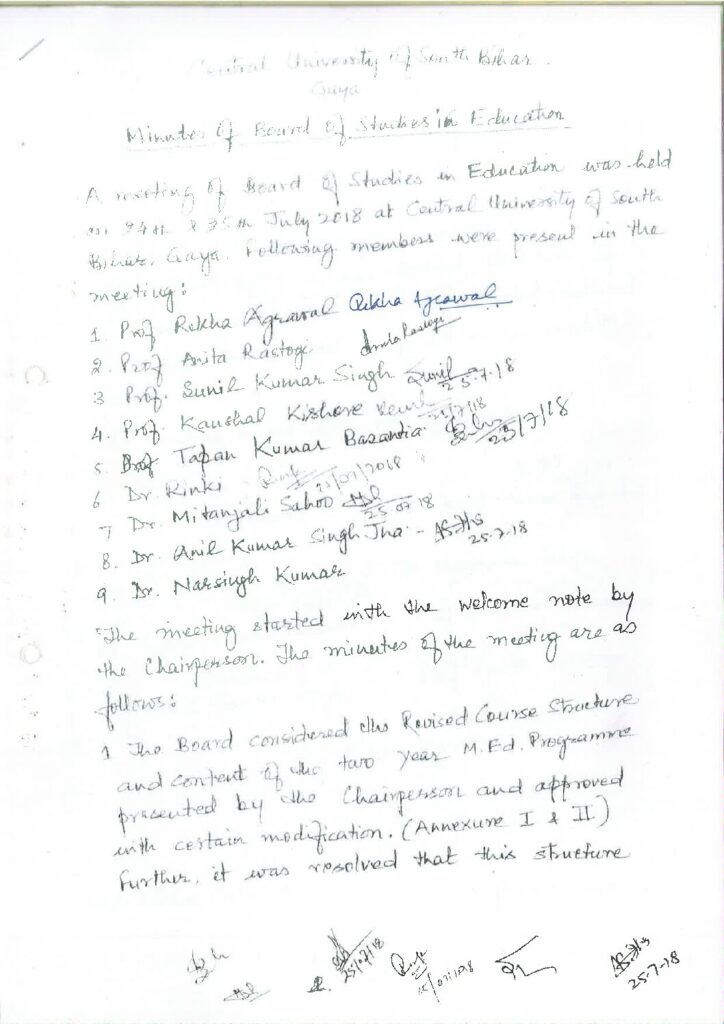 Central University of South Bihar.
Gaya
Minutes of Board of Studies in Education
A meeting of Board of Studies in Education was held
on 24th & 25th July 2018 at Central University of South
Bihar, Gaya. Following members were present in the
meeting:
1. Prof Rekha Agrawal Rekha Agrawal
2. Prof Anita Rastogi Anita Rastogi
3 Prof. Sunil Kumar Singh Sunil 25.7.18
4. Prof. Kaushal Kishore
5. Prof Tapan Kumar Basantia 25/7/18
6 Dr. Rinki
7 Dr. Mitanjali Sahoo 25 07 18
8. Dr. Anil Kumar Singh Jha - 25-7-18
9. Dr. Narsingh Kumar
The meeting started with the welcome note by
the Chairperson. The minutes of the meeting are as
follows:
1 The Board considered the Revised Course Structure
and content of the two year M.Ed. Programme
presented by the Chairperson and approved
with certain modification. (Annexure I & II)
Further, it was resolved that this structure
25/07/18
25-7-18